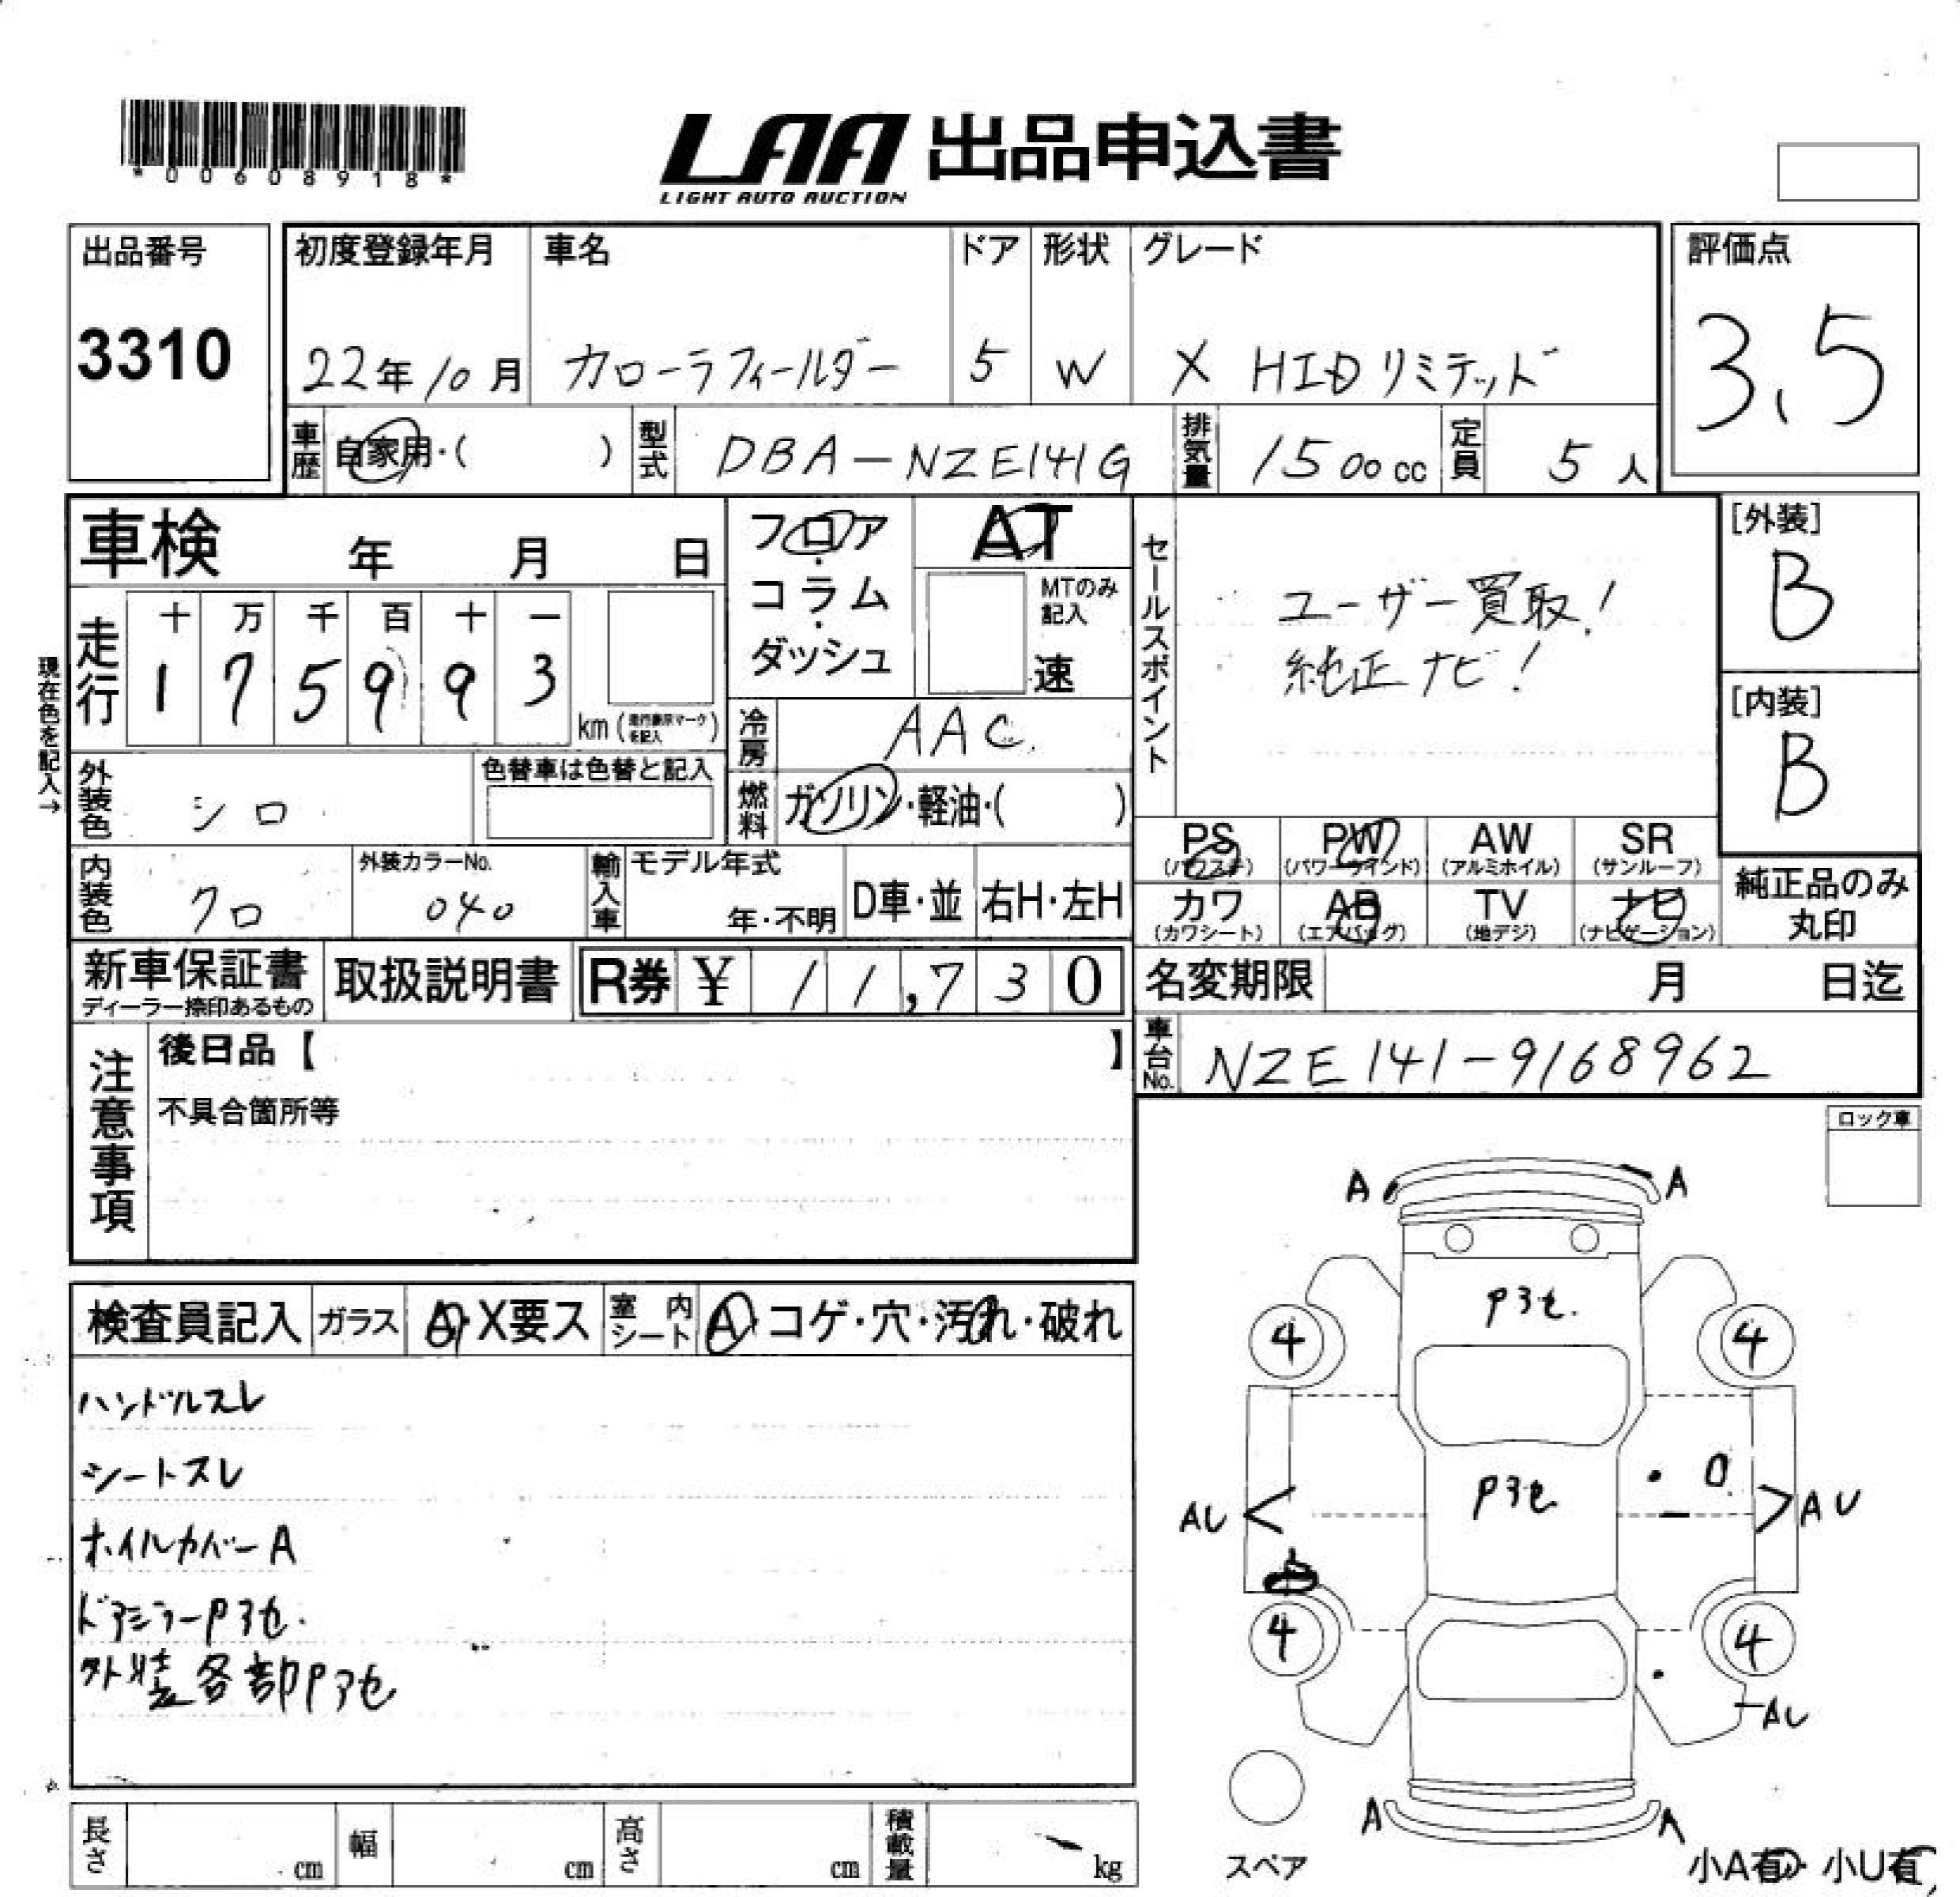 *00608918*
LAA 出品申込書
LIGHT AUTO AUCTION
出品番号
3310
初度登録年月
22年10月
車名
カローラフィールダー
ドア
5
形状
W
グレード
X HIDリミテッド
評価点
3.5
車歴
自家用・( )
型式
DBA-NZE141G
排気量
1500cc
定員
5人
車検 年 月 日
フロア・コラム・ダッシュ
AT
MTのみ記入
速
セールスポイント
ユーザー買取!
純正ナビ!
[外装]
B
[内装]
B
現在色を記入→
走行
十 万 千 百 十 一
1 7 5 9 9 3
km(走行表示マークを記入)
冷房
AAC
外装色
シロ
色替車は色替と記入
燃料
ガソリン・軽油・( )
PS
(パワステ)
PW
(パワーウインド)
AW
(アルミホイル)
SR
(サンルーフ)
内装色
クロ
外装カラーNo.
040
輸入車
モデル年式
年・不明
D車・並
右H・左H
カワ
(カワシート)
AB
(エアバッグ)
TV
(地デジ)
ナビ
(ナビゲーション)
純正品のみ
丸印
新車保証書
ディーラー捺印あるもの
取扱説明書
R券 ¥ 11,730
名変期限 月 日迄
注意事項
後日品【 】
不具合箇所等
車台No.
NZE141-9168962
ロック車
検査員記入
ガラス
A・X要ス
室内シート
A・コゲ・穴・汚れ・破れ
ハンドルスレ
シートスレ
ホイルカバーA
ドアミラーPアセ.
外装各部Pアセ
A A
Pアセ.
4 4
Pアセ
AU AU
4 4
AU
A A
スペア
小A有・小U有
長さ cm
幅 cm
高さ cm
積載量 kg